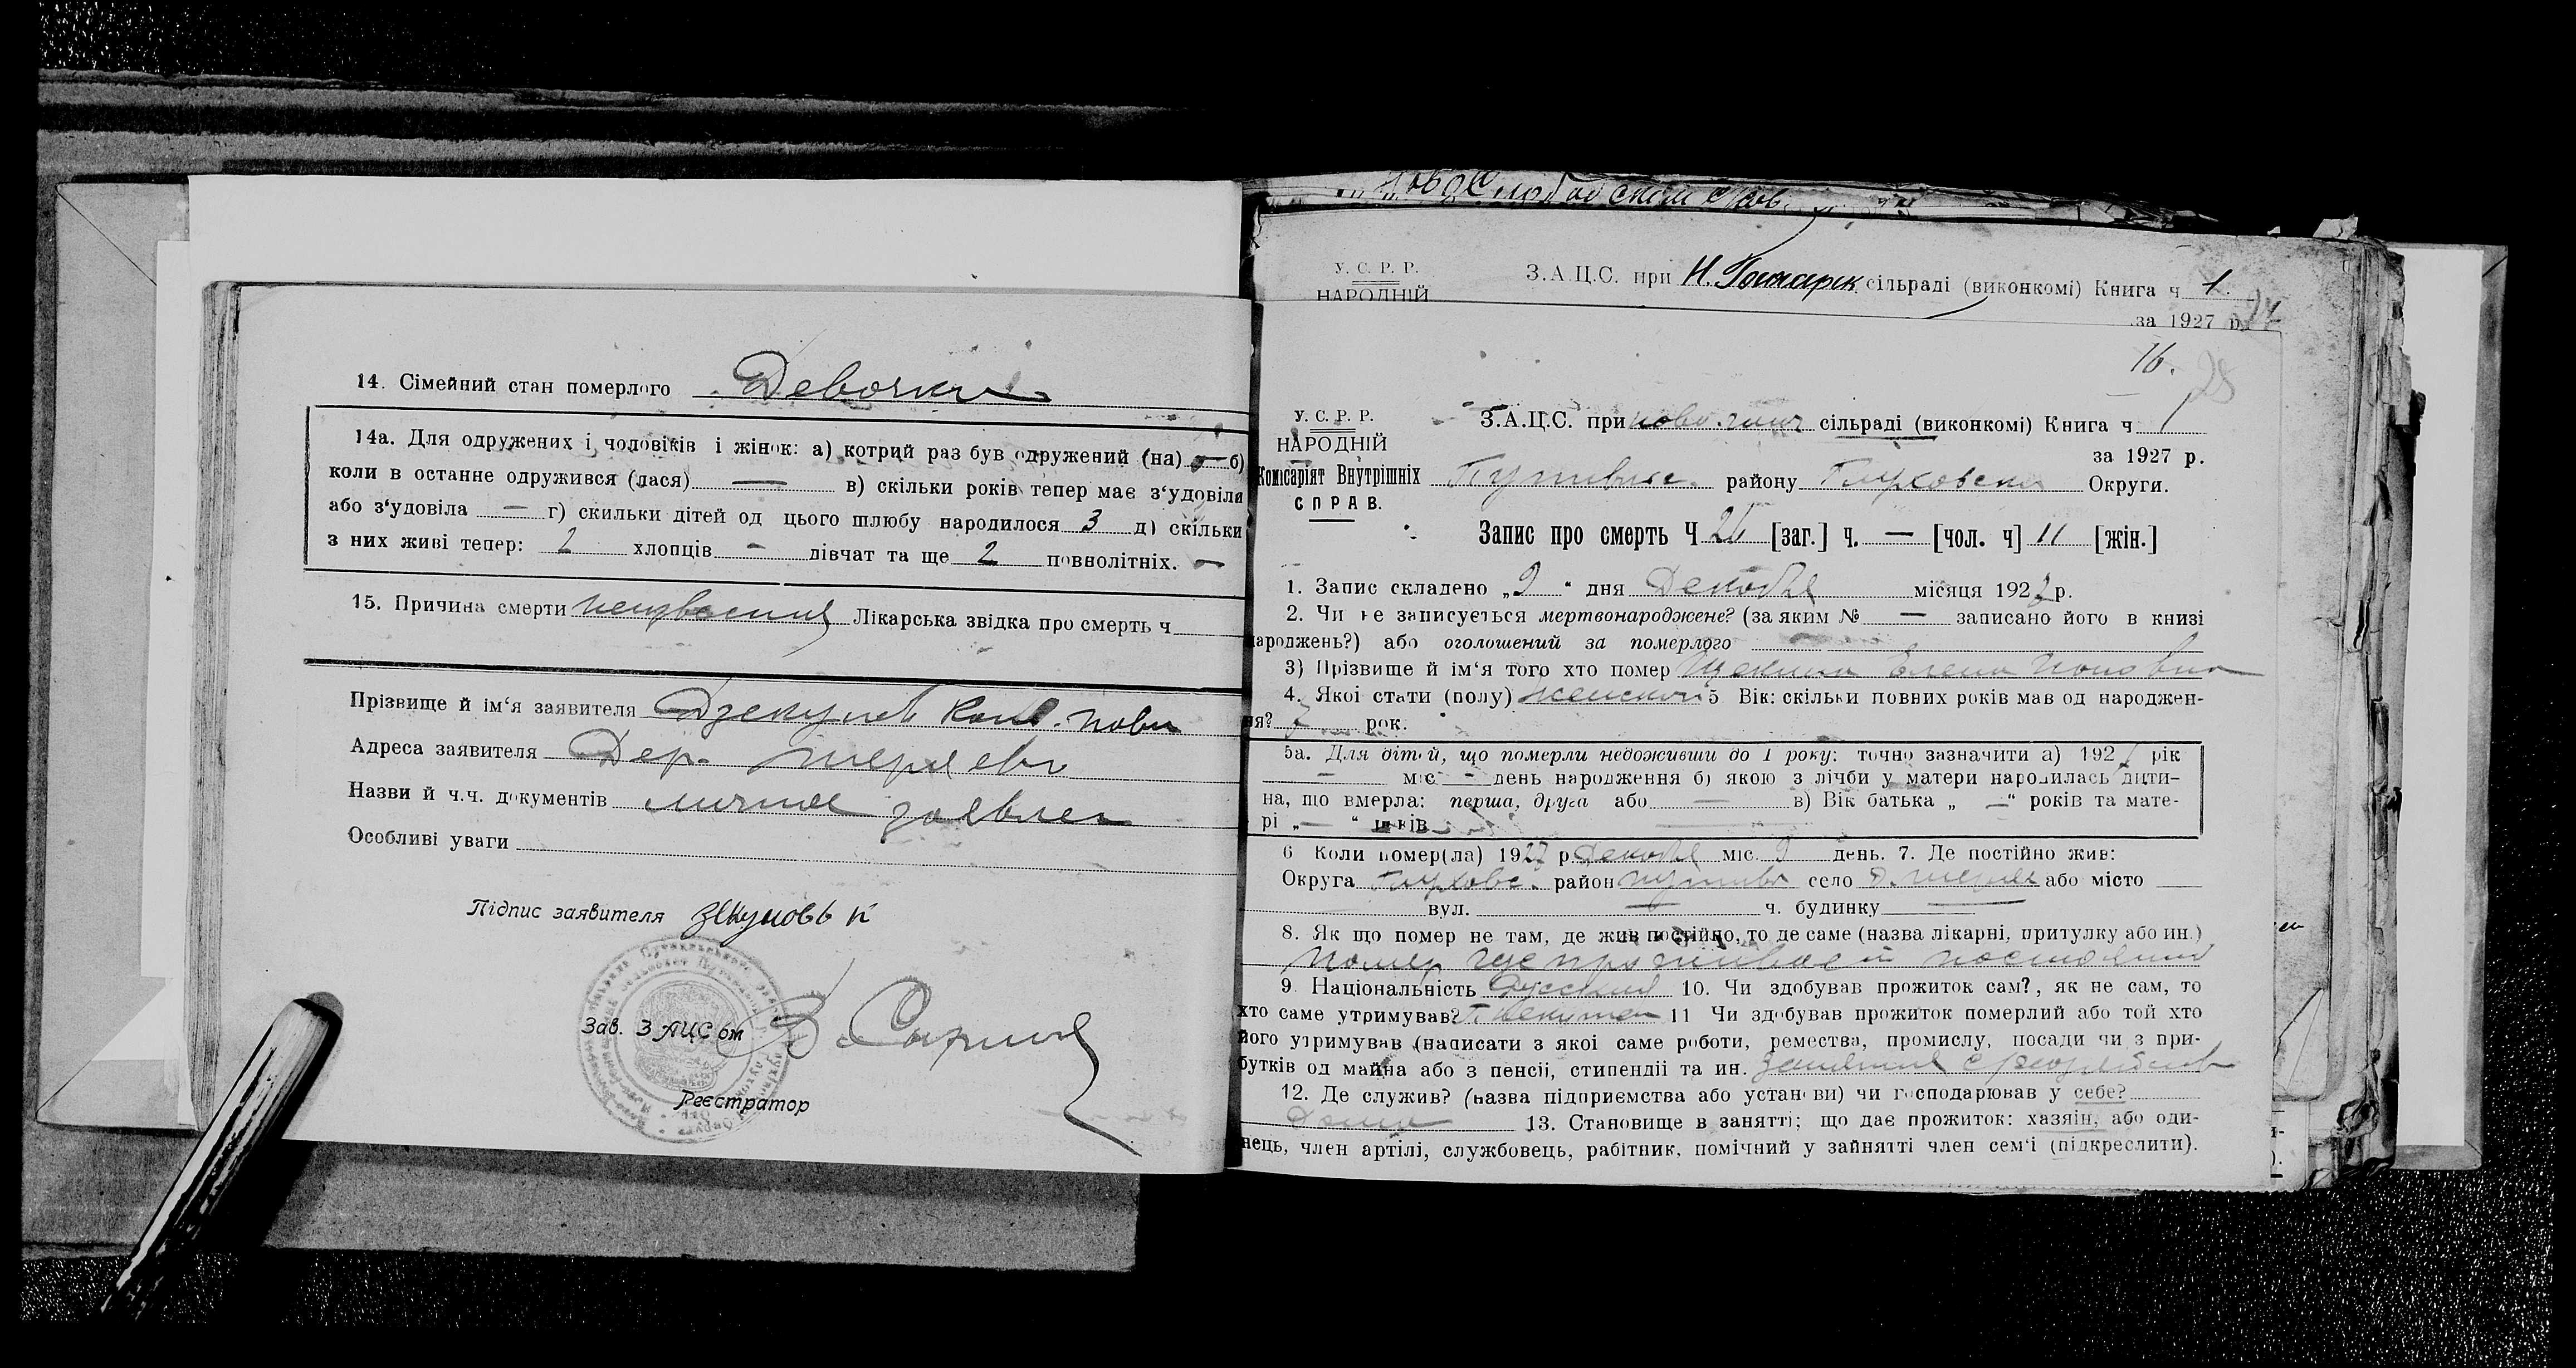 14. Сімейний стан померлого Девочка
14а. Для одружених і чоловіків і жінок: а) котрий раз був одружений (на) — б)
коли в останне одружився (лася) — в) скільки років тепер має з‘удовіли
або з‘удовіла — г) скильки дітей од цього шлюбу народилося 3 д) скільки
з них живі тепер: 2 хлопців — дівчат та ще 2 повнолітніх. —
15. Причина смерти неизвестна Лікарська звідка про смерть ч
Прізвище й ім‘я заявителя
Адреса заявителя Дер.
Назви й ч.ч. документів личное заявлен
Особливі уваги
Підпис заявителя
Зав. ЗАЦС ом
Реєстратор
Слободской
У. С. Р. Р.
НАРОДНІЙ
З.А.Ц.С. при Н. Гончарск сільраді (виконкомі) Книга ч 1.
за 1927 р.
16.
28
У. С. Р. Р.
НАРОДНІЙ
Комісаріят Внутрішніх
СПРАВ.
З.А.Ц.С. при ново гонч сільраді (виконкомі) Книга ч 1
за 1927 р.
Путивльс. району Глуховской Округи.
Запис про смерть Ч [заг.] ч. — [чол. ч] 11 [жін.]
1. Запис складено „9“ дня Декабря місяця 1927 р.
2. Чи не записується мертвонароджене? (за яким № — записано його в книзі
народжень?) або оголошений за померлого —
3) Прізвище й ім‘я того хто помер Елена
4. Якоі стати (полу) женской 5 Вік: скільки повних років мав од народжен-
ня? рок.
5а. Для дітей, що померли недоживши до 1 року: точно зазначити а) 192 рік
— міс — день народження б) якою з лічби у матери народилась дити-
на, що вмерла: перша, друга або — в) Вік батька „—“ років та мате-
рі „—“ років
6 Коли помер(ла) 1927 р Декабря міс. 9 день. 7. Де постійно жив:
Округа Глуховс. район путивл село д. або місто —
вул. — ч. будинку —
8. Як що помер не там, де жив постійно, то де саме (назва лікарні, притулку або ин.)
помер где проживает постоянно
9. Національність Русский 10. Чи здобував прожиток сам?, як не сам, то
хто саме утримував? 11 Чи здобував прожиток померлий або той хто
його утримував (написати з якоі саме роботи, ремества, промислу, посади чи з при-
бутків од майна або з пенсіі, стипендіі та ин.
12. Де служив? (назва підприємства або установи) чи господарював у себе?
Дома 13. Становище в занятті; що дає прожиток: хазяін, або оди-
нець, член артілі, службовець, рабітник, помічний у зайнятті член сем‘і (підкреслити).